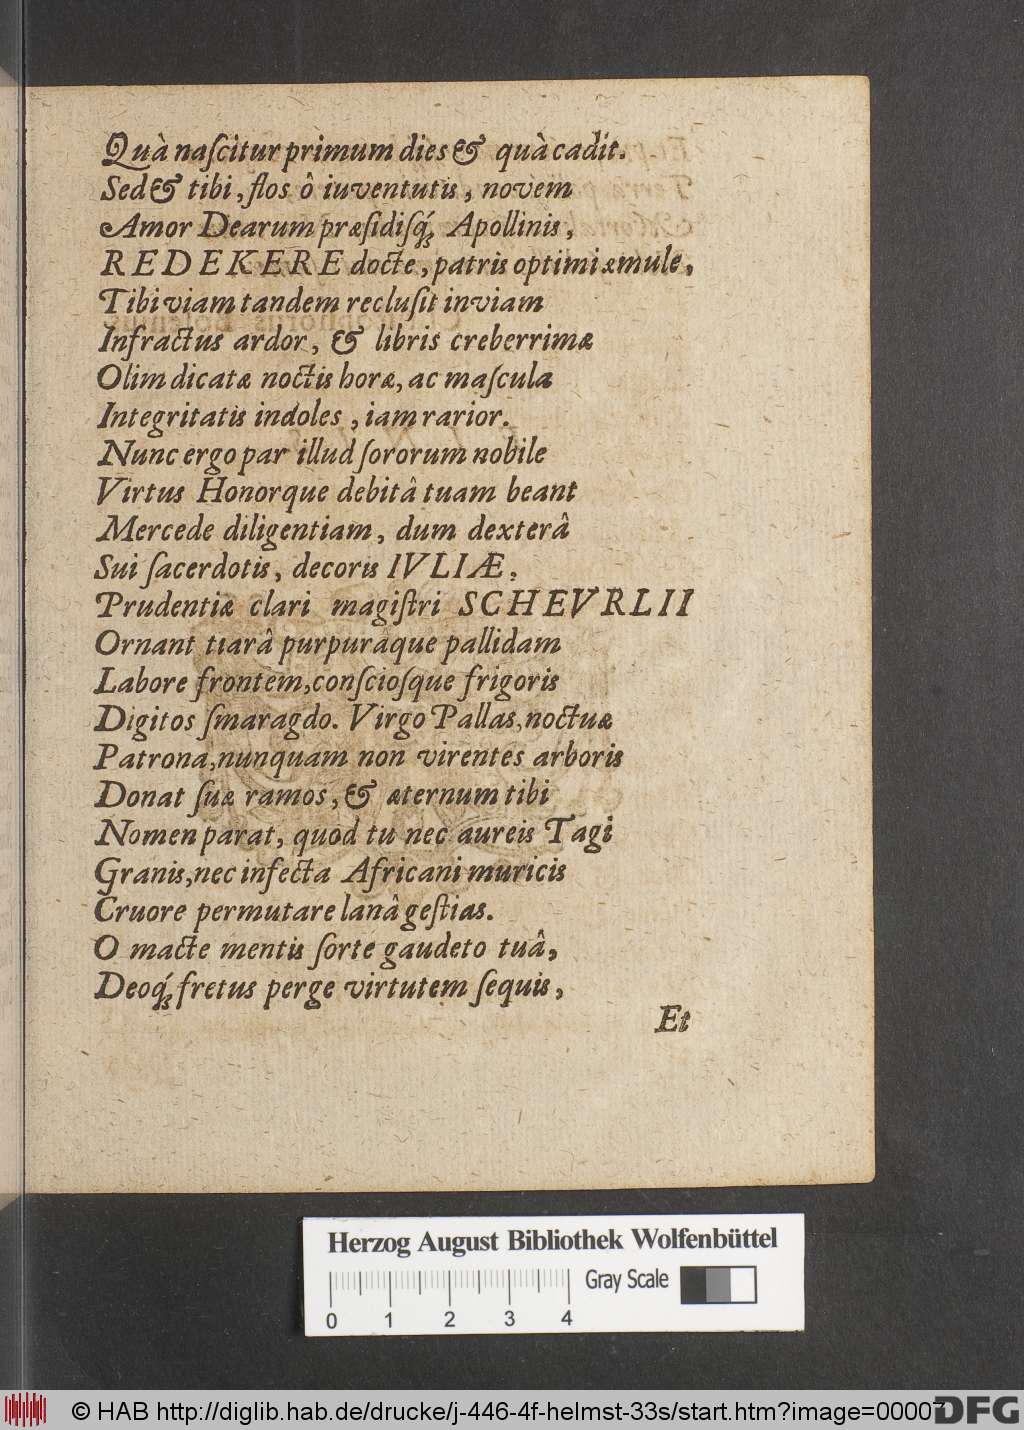 Quà naſcitur primum dies & quà cadit.
Sed & tibi, flos ô iuventutis, novem
Amor Dearum præſidiſq́; Apollinis,
REDEKERE docte, patris optimi æmule,
Tibi viam tandem recluſit inviam
Infractus ardor, & libris creberrimæ
Olim dicatæ noctis horæ, ac maſcula
Integritatis indoles, iam rarior.
Nunc ergo par illud ſororum nobile
Virtus Honorque debitâ tuam beant
Mercede diligentiam, dum dexterâ
Sui ſacerdotis, decoris IVLIÆ,
Prudentiæ clari magiſtri SCHEVRLII
Ornant tiarâ purpuraque pallidam
Labore frontem, conſcioſque frigoris
Digitos ſmaragdo. Virgo Pallas, noctuæ
Patrona, nunquam non virentes arboris
Donat ſuæ ramos, & æternum tibi
Nomen parat, quod tu nec aureis Tagi
Granis, nec infecta Africani muricis
Cruore permutare lanâ geſtias.
O macte mentis ſorte gaudeto tuâ,
Deoq́; fretus perge virtutem ſequis,
Et
Herzog August Bibliothek Wolfenbüttel
Gray Scale
0 1 2 3 4
© HAB http://diglib.hab.de/drucke/j-446-4f-helmst-33s/start.htm?image=00007
DFG